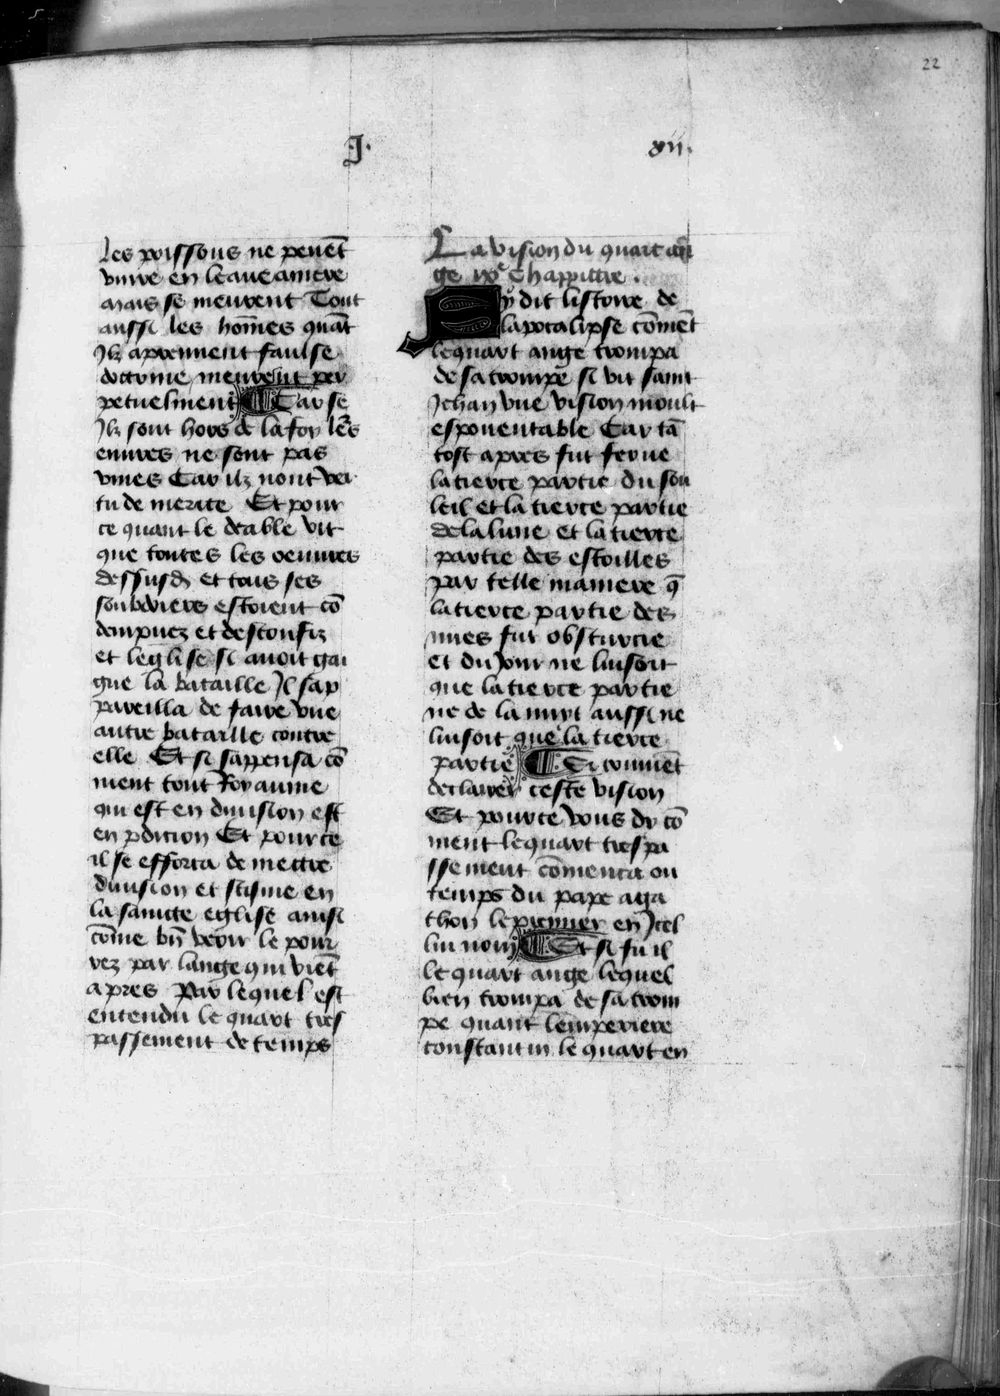 22
J.
xii.
les poissons ne peuēt
viure en leaue amere
mais se meurent Tout
aussi les hom̄es quāt
Jlz aprennent faulse
doctrine meurent per
petuelment ¶ Car se
Jlz sont hors de la foy le's
euures ne sont pas
viues Car ilz nont ver
tu de merite Et pour
ce quant le deable vit
que toutes les oeuures
dessusd' et tous ses
souldoiers estoient cō
dempnez et desconfiz
et leglise si auoit gai
gne la bataille Jl sap
pareilla de faire vne
autre bataille contre
elle Et si sappensa cō
ment tout Royaume
qui est en diuision est
en pdicion Et pource
il se efforca de mettre
diuision et scisme en
la saincte eglise ainsi
cōme bn̄ veoir le pour
rez par lange qui viēt
apres Par lequel est
entendu le quart tres
passement de temps
La vision du quart an
ge ixe Chappittre .
Ey dit listoire de
lapocalipse cōmēt
lequart ange trompa
de sa trompe si vit saint
Jehan vne vision moult
espouentable Car tā
tost apres fut ferue
la tierce partie du sou
leil et la tierce partie
de la lune et la tierce
partie des estoilles
par telle maniere q̄
la tierce partie des
nues fut obscurcie
et du Jour ne luisoit
que la tierce partie
ne de la nuyt aussi ne
luisoit que la tierce
partie ¶ Si conuiēt
declairer ceste vision
Et pource vous dy cō
ment lequart trespa
ssement cōmenca ou
temps du pape aga
thon le premier en Jcel
lui nom ¶ Et si fu il
le quart ange lequel
bien trompa de sa trom
pe quant lemperiere
constantin le quart en